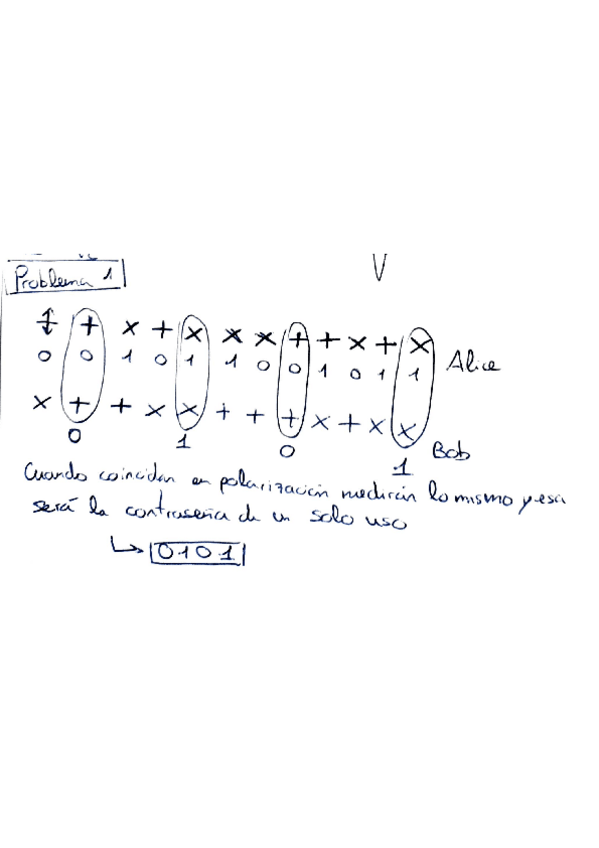 Problema 1
V
‡ + x + x x x + + x + x
0 0 1 0 1 1 0 0 1 0 1 1 Alice
x + + x x + + + x + x x
0 1 0 1 Bob
Cuando coincidan en polarización medirán lo mismo y esa
será la contraseña de un solo uso
↳ 0101